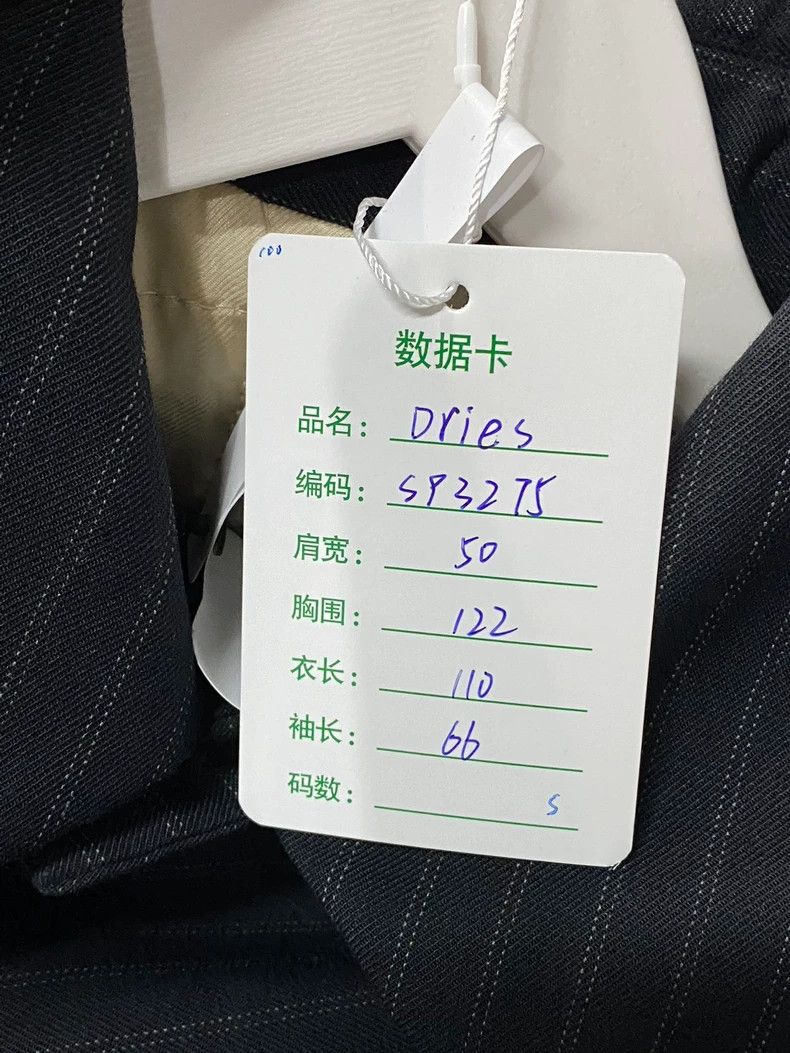 100
数据卡
品名: Dries
编码: SP3275
肩宽: 50
胸围: 122
衣长: 110
袖长: 66
码数: S